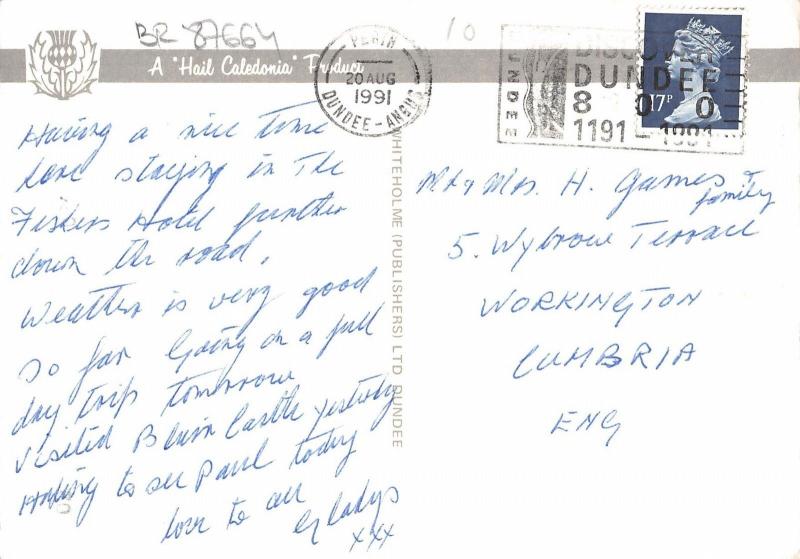 BR 87664
10
A "Hail Caledonia" Product
PERTH
20 AUG
1991
DUNDEE - ANGUS
DUNDEE
DISCOVER
DUNDEE
8 0 0
1191 - 1991
17P
Having a nice time
here staying in The
Fishers Hotel further
down the road.
Weather is very good
so far going on a full
day trip tomorrow
visited Blair Castle yesterday
Hoping to see Paul today
love to all
Gladys
xxx
WHITEHOLME (PUBLISHERS) LTD DUNDEE
Mr & Mrs. H. Games &
family
5. Wybrow Terrace
WORKINGTON
CUMBRIA
ENG